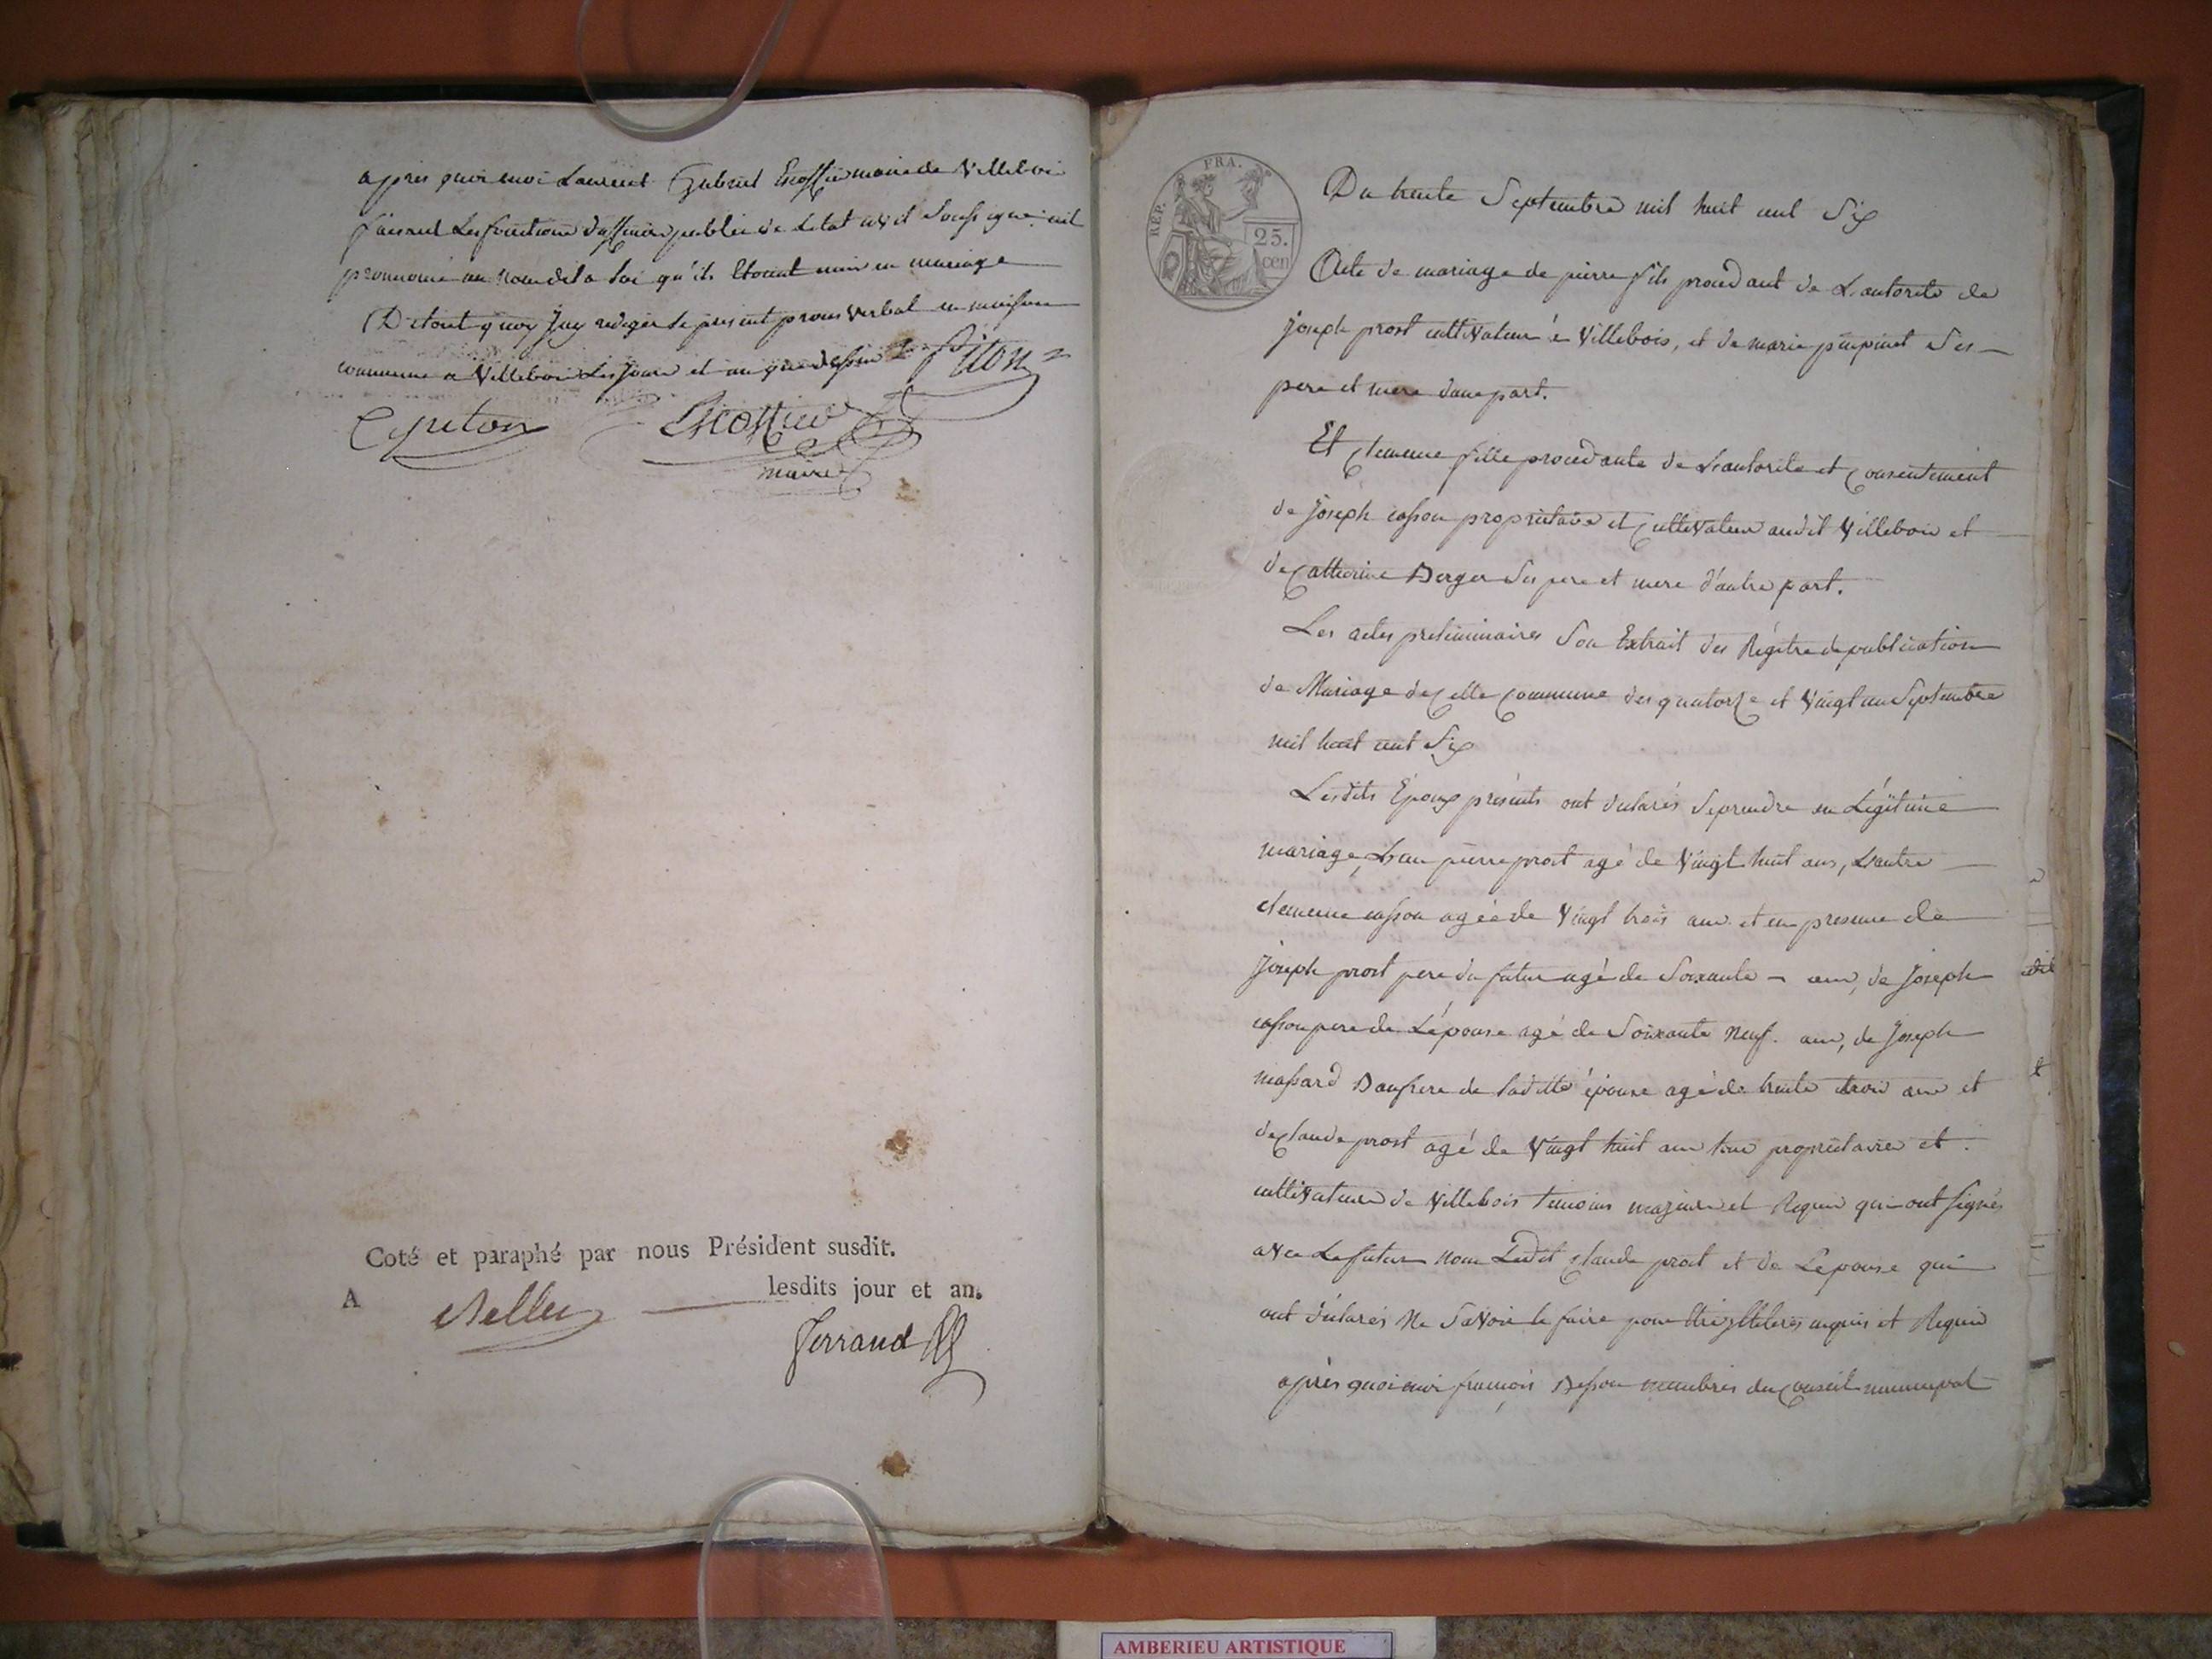 après quoi moi Laurent Gabriel Escoffier maire de Villeboi
faisant Les fonctions d'officier public de Letat civil Soussigné ait
prononcé au nom de la Loi qu'ils Etoient unis en mariage
De tout quoy Jay redigé Le present procès verbal en maison
commune a Villebois Les Jour et an que dessus
Piton
C piton
Escoffier
maire
Coté et paraphé par nous Président susdit.
A Belley lesdits jour et an.
Ferrand
REP. FRA.
25.
cen
Du trente Septembre mil huit cent Six
Acte de mariage de pierre fils procedant de L'autorité de
Joseph prost cultivateur à Villebois, et de marie pinpinet Ses
pere et mere d'une part.
Et clemence fille procedante de L'autorité et consentement
de Joseph casson propriétaire et Cultivateur audit Villeboi et
de Catherine Berger Ses pere et mere d'autre part.
Les actes preliminaires Son Extrait des Régitre de publication
de Mariage de cette Commune des quatorze et Vingt un Septembre
mil huit cent Six
Lesdits Époux présents ont declarés Se prendre en Légitime
mariage, L'un pierre prost agé de Vingt huit ans, L'autre
clemence casson agée de Vingt trois ans. et en presence de
Joseph prost pere du futur agé de Soixante ans, de Joseph
casson pere de L'épouse agé de Soixante Neuf. ans, de Joseph
massard Baufrere de ladite épouse agé de trente trois ans et
de Claude prost agé de Vingt huit ans tous propriétaires et
cultivateurs de Villebois temoins majeurs et Requis qui ont signés
avec Le futur Nom Ledit Claude prost et de L'epouse qui
ont déclarés Ne Savoir le faire pour être Illiterés enquis et Requis
après quoi moi françois Besson membres du Conseil municipal
AMBERIEU ARTISTIQUE